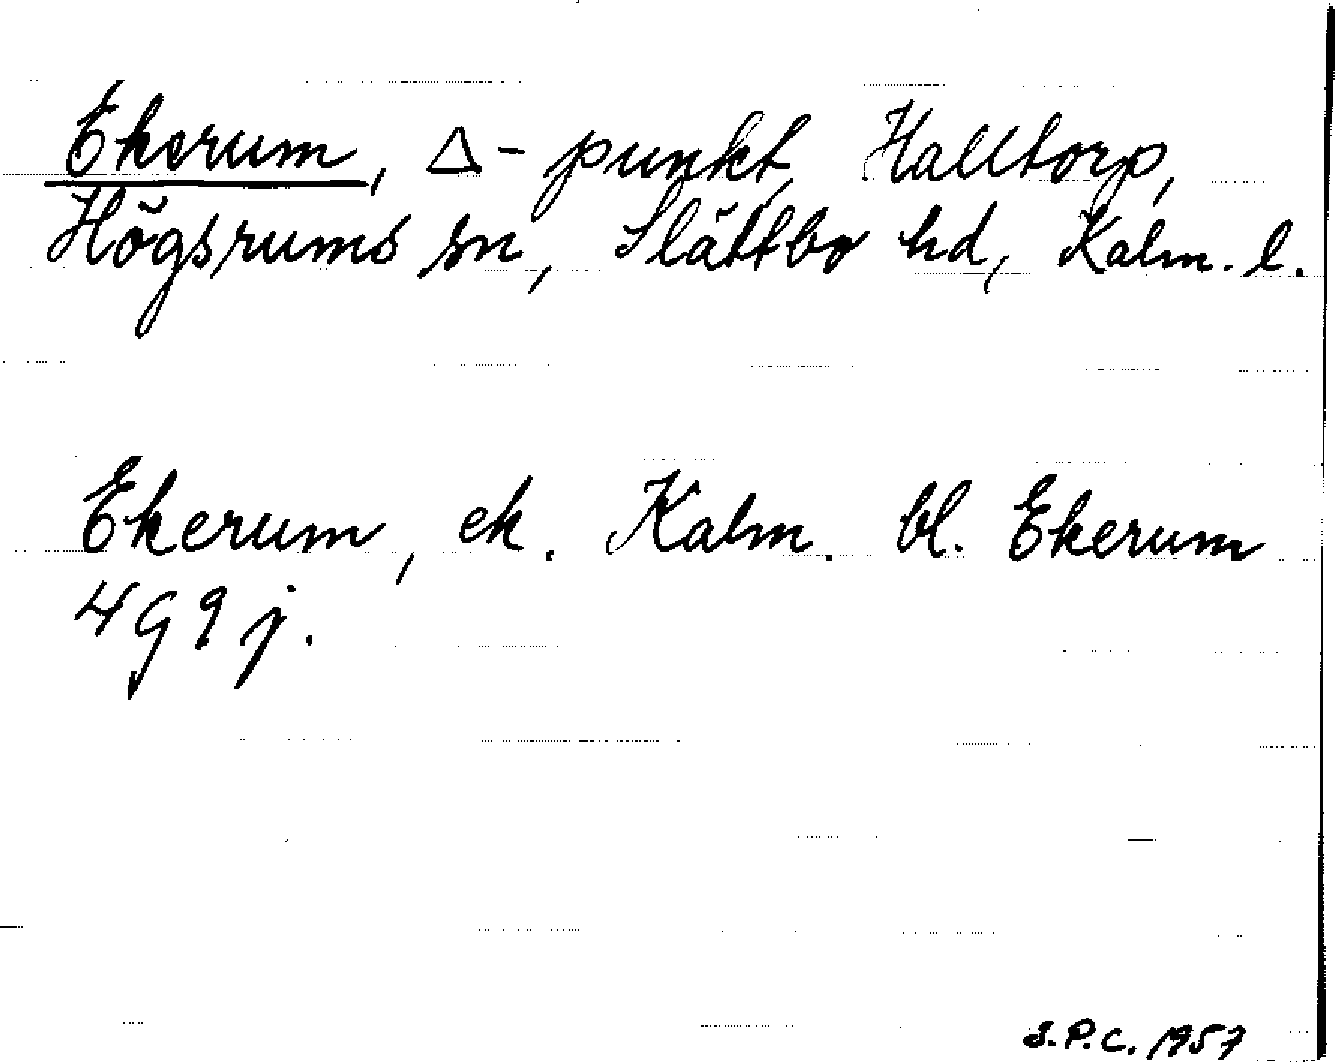 Ekerum, Δ-punkt, Halltorp,
Högsrums sn, Slättbo hd, Kalm. l.
Ekerum, ek. Kalm. bl. Ekerum
4G9j.
S.P.C. 1957